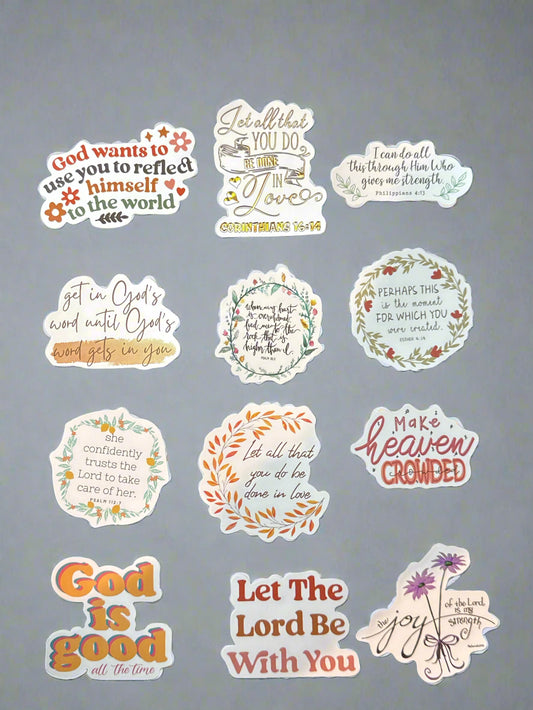 God wants to
use you to reflect
himself
to the world
Let all that
YOU DO
BE DONE
IN
Love
CORINTHIANS 16:14
I can do all
this through Him Who
gives me strength.
Philippians 4:13
get in God's
word until God's
word gets in you
when my heart
is overwhelmed
lead me to the
rock that is
higher than I.
PERHAPS THIS
is the moment
FOR WHICH YOU
were created.
ESTHER 4:14
she
confidently
trusts the
Lord to take
care of her.
PSALM 112:7
Let all that
you do be
done in love
Make
heaven
CROWDED
God
is
good
all the time
Let The
Lord Be
With You
the joy
of the Lord
is my
strength